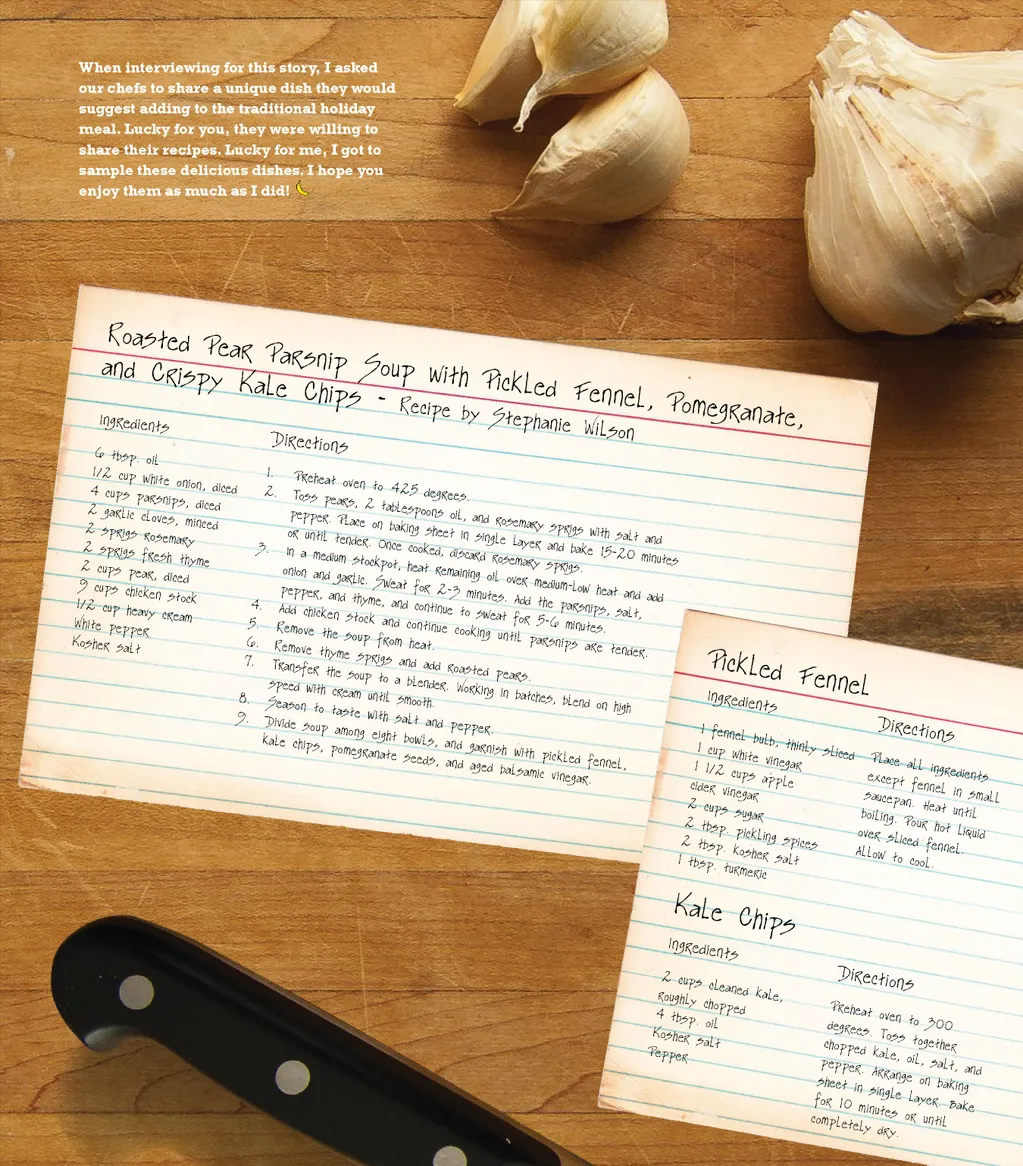 When interviewing for this story, I asked
our chefs to share a unique dish they would
suggest adding to the traditional holiday
meal. Lucky for you, they were willing to
share their recipes. Lucky for me, I got to
sample these delicious dishes. I hope you
enjoy them as much as I did!
Roasted Pear Parsnip Soup with Pickled Fennel, Pomegranate,
and Crispy Kale Chips - Recipe by Stephanie Wilson
Ingredients
6 tbsp. oil
1/2 cup white onion, diced
4 cups parsnips, diced
2 garlic cloves, minced
2 sprigs rosemary
2 sprigs fresh thyme
2 cups pear, diced
9 cups chicken stock
1/2 cup heavy cream
White pepper
Kosher salt
Directions
1. Preheat oven to 425 degrees.
2. Toss pears, 2 tablespoons oil, and rosemary sprigs with salt and
pepper. Place on baking sheet in single layer and bake 15-20 minutes
or until tender. Once cooked, discard rosemary sprigs.
3. In a medium stockpot, heat remaining oil over medium-low heat and add
onion and garlic. Sweat for 2-3 minutes. Add the parsnips, salt,
pepper, and thyme, and continue to sweat for 5-6 minutes.
4. Add chicken stock and continue cooking until parsnips are tender.
5. Remove the soup from heat.
6. Remove thyme sprigs and add roasted pears.
7. Transfer the soup to a blender. Working in batches, blend on high
speed with cream until smooth.
8. Season to taste with salt and pepper.
9. Divide soup among eight bowls, and garnish with pickled fennel,
kale chips, pomegranate seeds, and aged balsamic vinegar.
Pickled Fennel
Ingredients
1 fennel bulb, thinly sliced
1 cup white vinegar
1 1/2 cups apple
cider vinegar
2 cups sugar
2 tbsp. pickling spices
2 tbsp. kosher salt
1 tbsp. turmeric
Directions
Place all ingredients
except fennel in small
saucepan. Heat until
boiling. Pour hot liquid
over sliced fennel.
Allow to cool.
Kale Chips
Ingredients
2 cups cleaned kale,
roughly chopped
4 tbsp. oil
Kosher salt
Pepper
Directions
Preheat oven to 300
degrees. Toss together
chopped kale, oil, salt, and
pepper. Arrange on baking
sheet in single layer. Bake
for 10 minutes or until
completely dry.